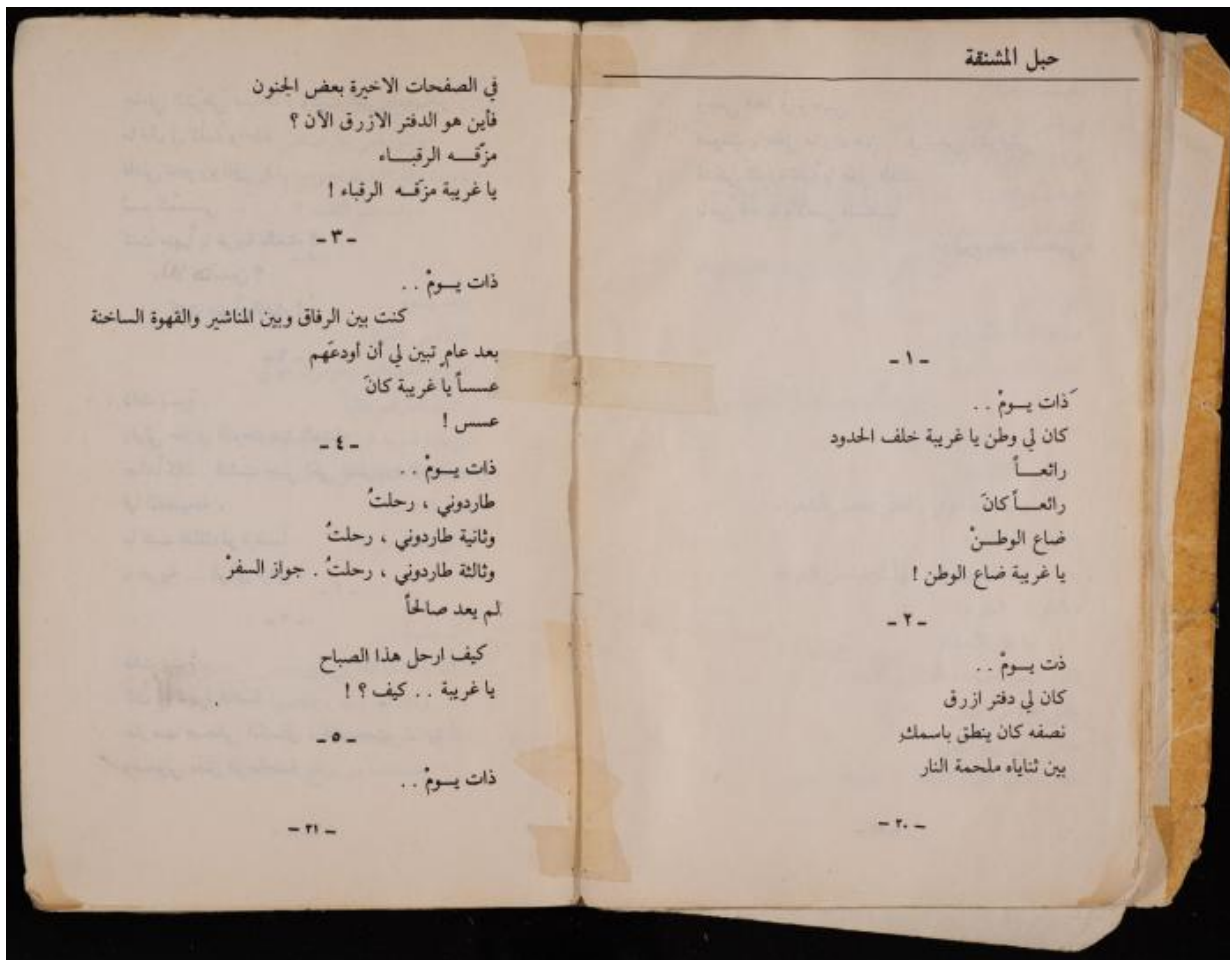 حبل المشنقة
ـ ١ ـ
ذات يــومْ . .
كان لي وطن يا غريبة خلف الحدود
رائعــــاً
رائعــــاً كانَ
ضاع الوطــنْ
يا غريبة ضاع الوطن !
ـ ٢ ـ
ذت يــومْ . .
كان لي دفتر ازرق
نصفه كان ينطق باسمك
بين ثناياه ملحمة النار
ـ ٢٠ ـ
في الصفحات الاخيرة بعض الجنون
فأين هو الدفتر الازرق الآن ؟
مزّقــه الرقبــاء
يا غريبة مزّقــه الرقباء !
ـ ٣ ـ
ذات يــومْ . .
كنت بين الرفاق وبين المناشير والقهوة الساخنة
بعد عامٍ تبين لي أن أودعَهم
عسساً يا غريبة كانَ
عسس !
ـ ٤ ـ
ذات يــومْ . .
طاردوني ، رحلتُ
وثانية طاردوني ، رحلتُ
وثالثة طاردوني ، رحلتُ . جواز السفرْ
لم يعد صالحاً
كيف ارحل هذا الصباح
يا غريبة . . كيف ؟ !
ـ ٥ ـ
ذات يــومْ . .
ـ ٢١ ـ